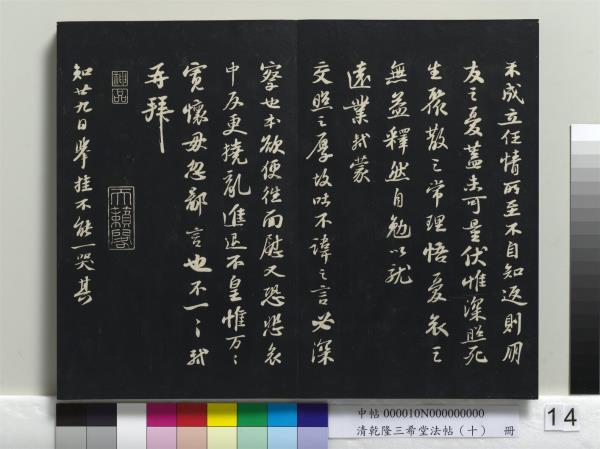 未成立任情所至不自知返則朋
友之憂蓋未可量伏惟深照死
生聚散之常理悟憂哀之
無益釋然自勉以就
遠業軾蒙
交照之厚故吐不諱之言必深
察也本欲便往面慰又恐悲哀
中反更撓亂進退不皇惟万万
寬懷毋忽鄙言也不一一軾
再拜
神品
天籟閣
知廿九日舉挂不能一哭其
中帖 000010N000000000
清乾隆三希堂法帖(十) 冊
14